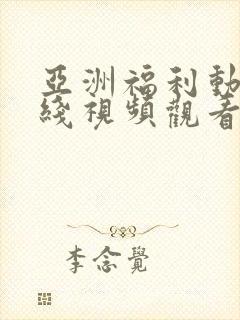 亞洲福利動
綫視頻觀看
李念覺